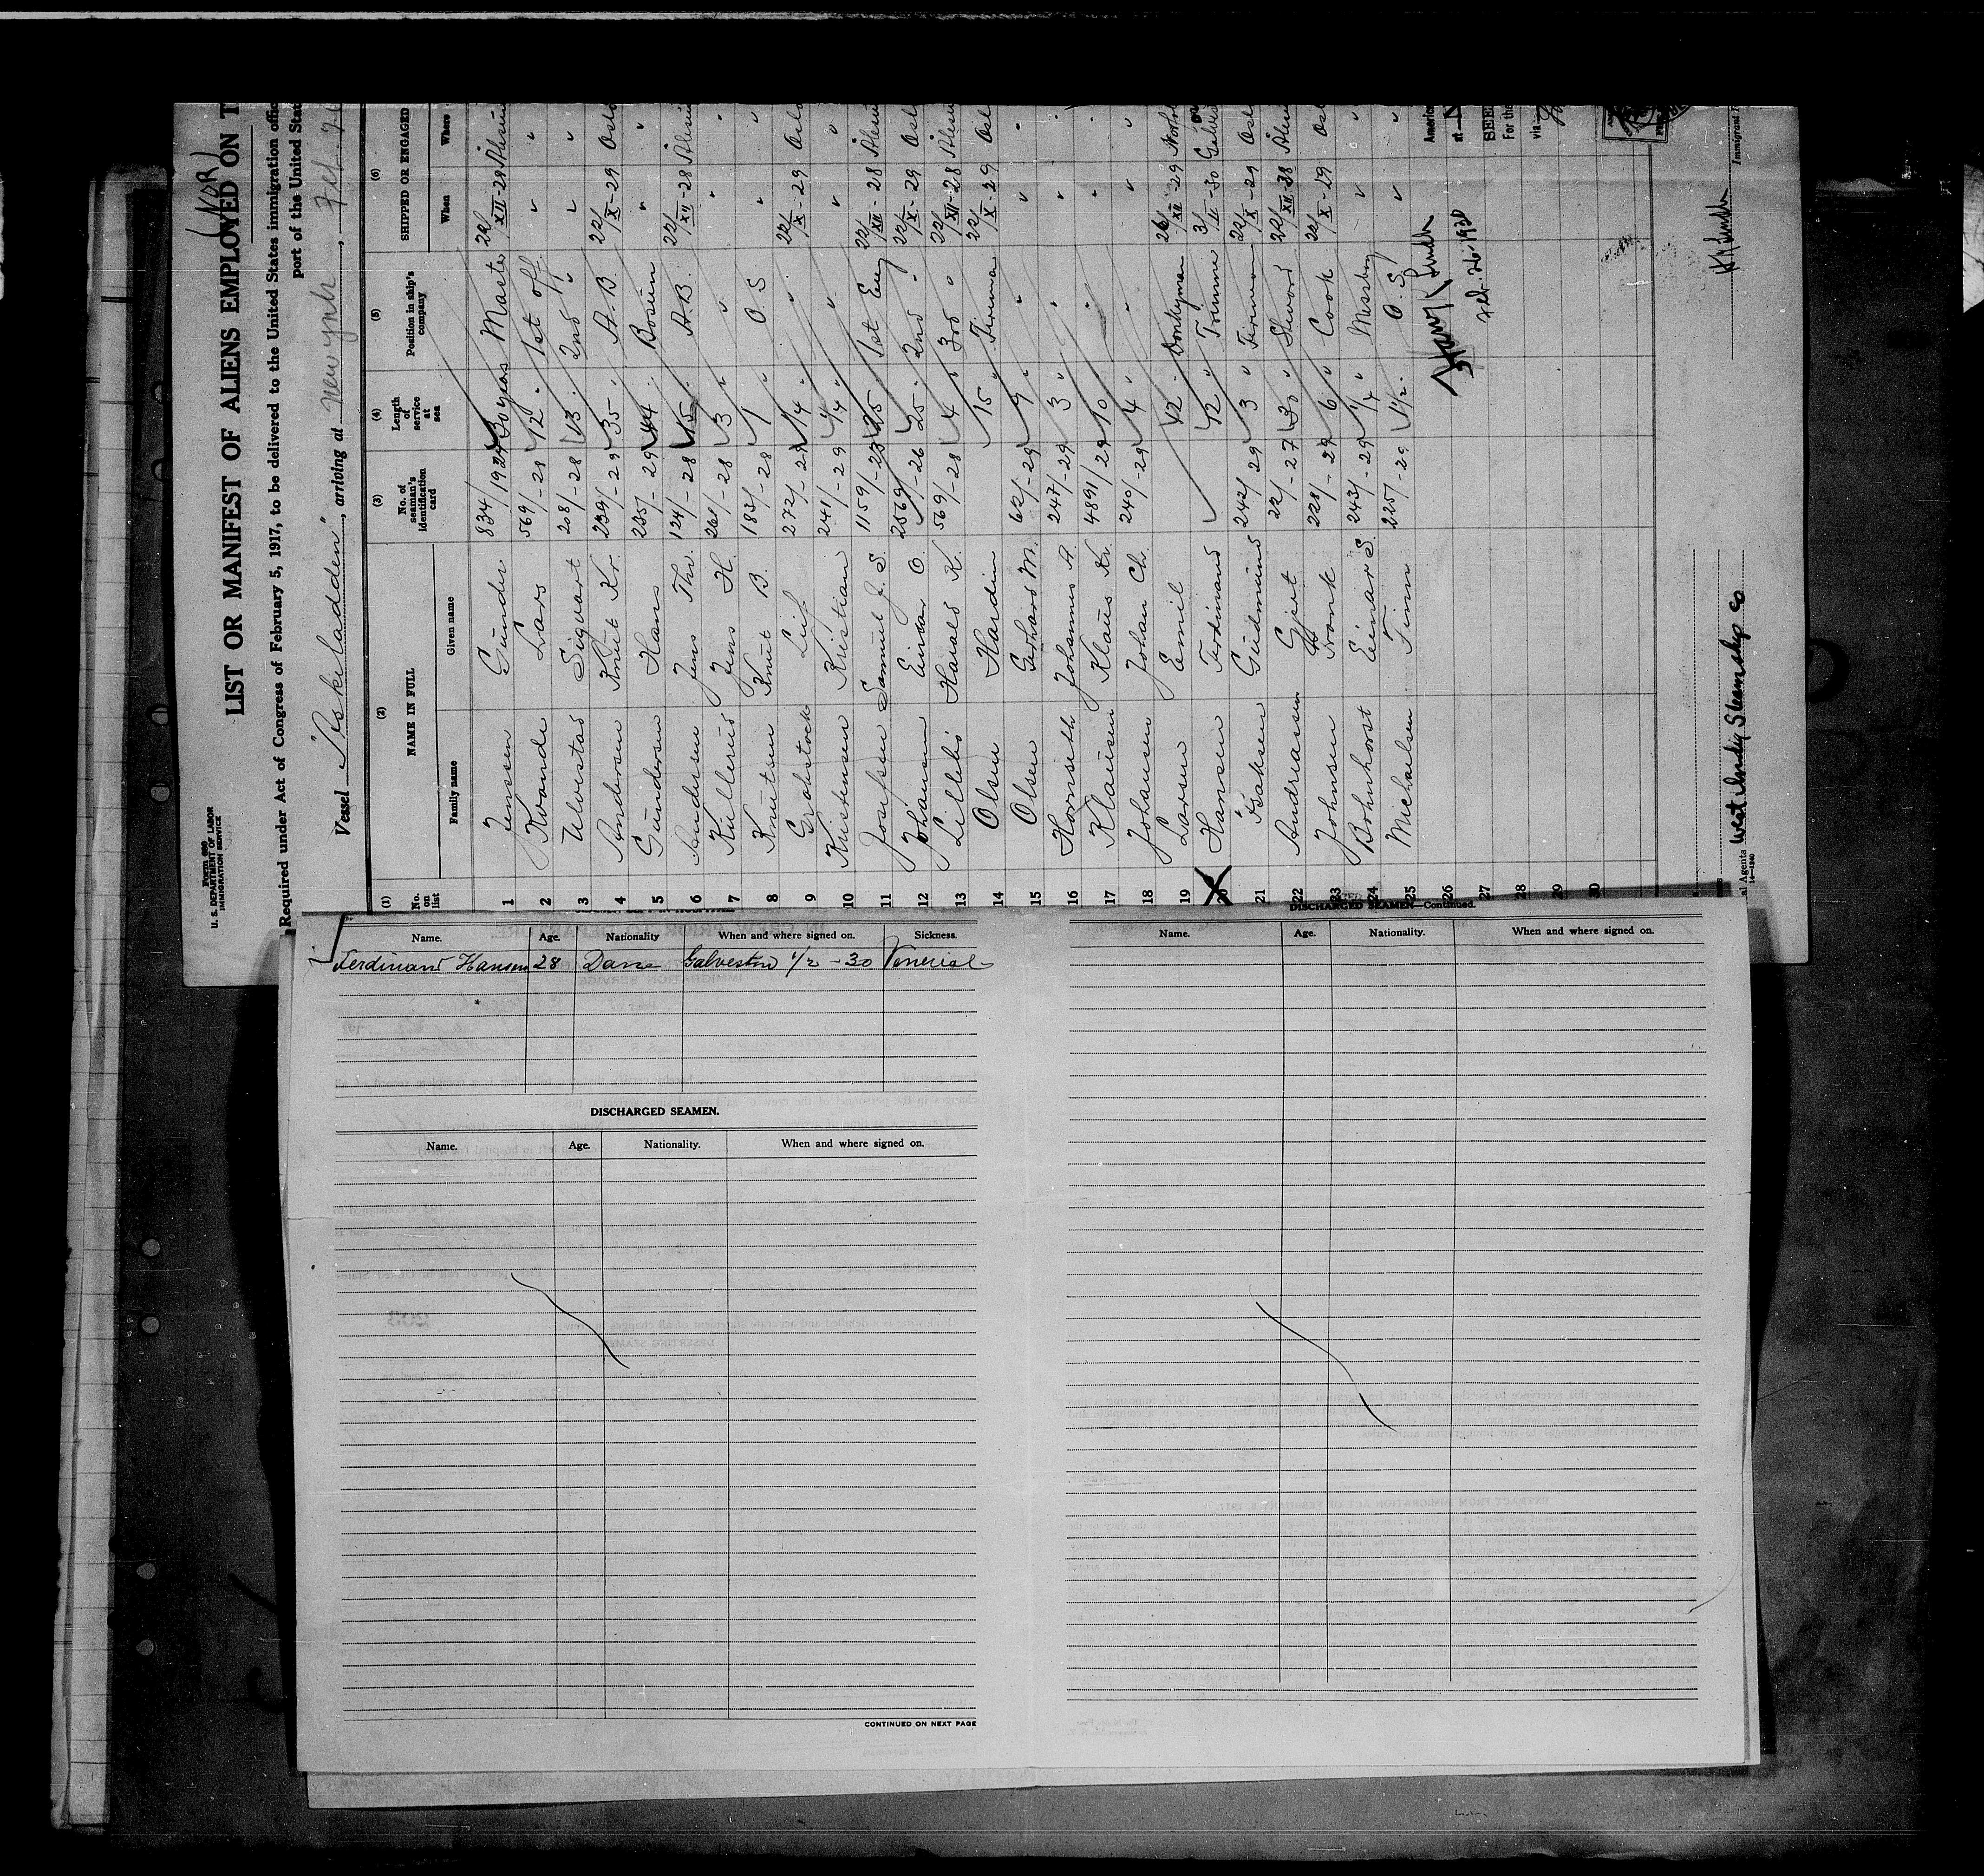 (NOR)
FORM 689
U. S. DEPARTMENT OF LABOR
IMMIGRATION SERVICE
LIST OR MANIFEST OF ALIENS EMPLOYED ON T
Required under Act of Congress of February 5, 1917, to be delivered to the United States immigration offic
port of the United Stat
Vessel "Askeladden", arriving at New York, Feb.
(1) (2) (3) (4) (5) (6)
No. on list NAME IN FULL No. of seaman's identification card Length of service at sea Position in ship's company SHIPPED OR ENGAGED
Family name Given name When Where
1 Jenssen Gunder 834/1924 30 years Master 22/XII-28 Alesun
2 Kvande Lars 569/-28 12 " 1st off. " "
3 Ulvestad Siguart 208/-28 13 " 2nd " " "
4 Andersen Knut Kr. 239/-29 35 " A.B 22/X-29 Oslo
5 Gundersen Hans 235/-29 44 " Bosun " "
6 Andersen Jens Thr. 124/-28 15 " A.B. 22/XII-28 Alesun
7 Kullerud Jens H. 268/-28 3 " " " "
8 Knutsen Knut B. 183/-28 1 " O.S " "
9 Grahstock Leif 272/-29 1/4 " " 22/X-29 Oslo
10 Kristensen Kristian 241/-29 4/4 " " " "
11 Josefsen Samuel J. S. 1159/-23 25 " 1st Eng 22/XII-28 Alesun
12 Johansen Einar O 2569/-26 25 " 2nd " 22/X-29 Osl
13 Lillebö Harald K. 569/-28 4 " 3rd " 22/XII-28 Alesun
14 Olsen Hardin 15 " Fireman 22/X-29 Osl
15 Olsen Gerhard M. 62/-29 9 " " " "
16 Hornseth Johannes A. 247/-29 3 " " " "
17 Klausen Klaus Kr. 4891/29 10 " " "
18 Johansen Johan Ch. 240/-29 4 " " " "
19 Larsen Emil 12 " Donkyman 26/XII-29 Norfo
20 Hansen Ferdinand 12 " Trimmer 3/II-30 Galves
21 Isaksen Gudmund 242/29 3 " Fireman 22/X-29 Osl
22 Andreasen Gjert 22/-27 30 " Steward 22/XII-28 Alesu
23 Johnsen Frank 228/-29 6 " Cook 22/X-29 Osl
24 Bornhorst Einar S. 243/-29 1/4 " Messboy " "
25 Michaelsen Finn 225/-29 1 1/2 " O.S. " "
26
27
28
29
30
Feb. 26. 1930
America
at
SEE
For the
via
al Agents West India Steamship Co
14-1240
Immigrant I
Name. Age. Nationality When and where signed on. Sickness.
Ferdinand Hansen 28 Dane Galveston 1/2 -30 Venerial
DISCHARGED SEAMEN.
Name. Age. Nationality. When and where signed on.
CONTINUED ON NEXT PAGE
DISCHARGED SEAMEN—Continued.
Name. Age. Nationality. When and where signed on.